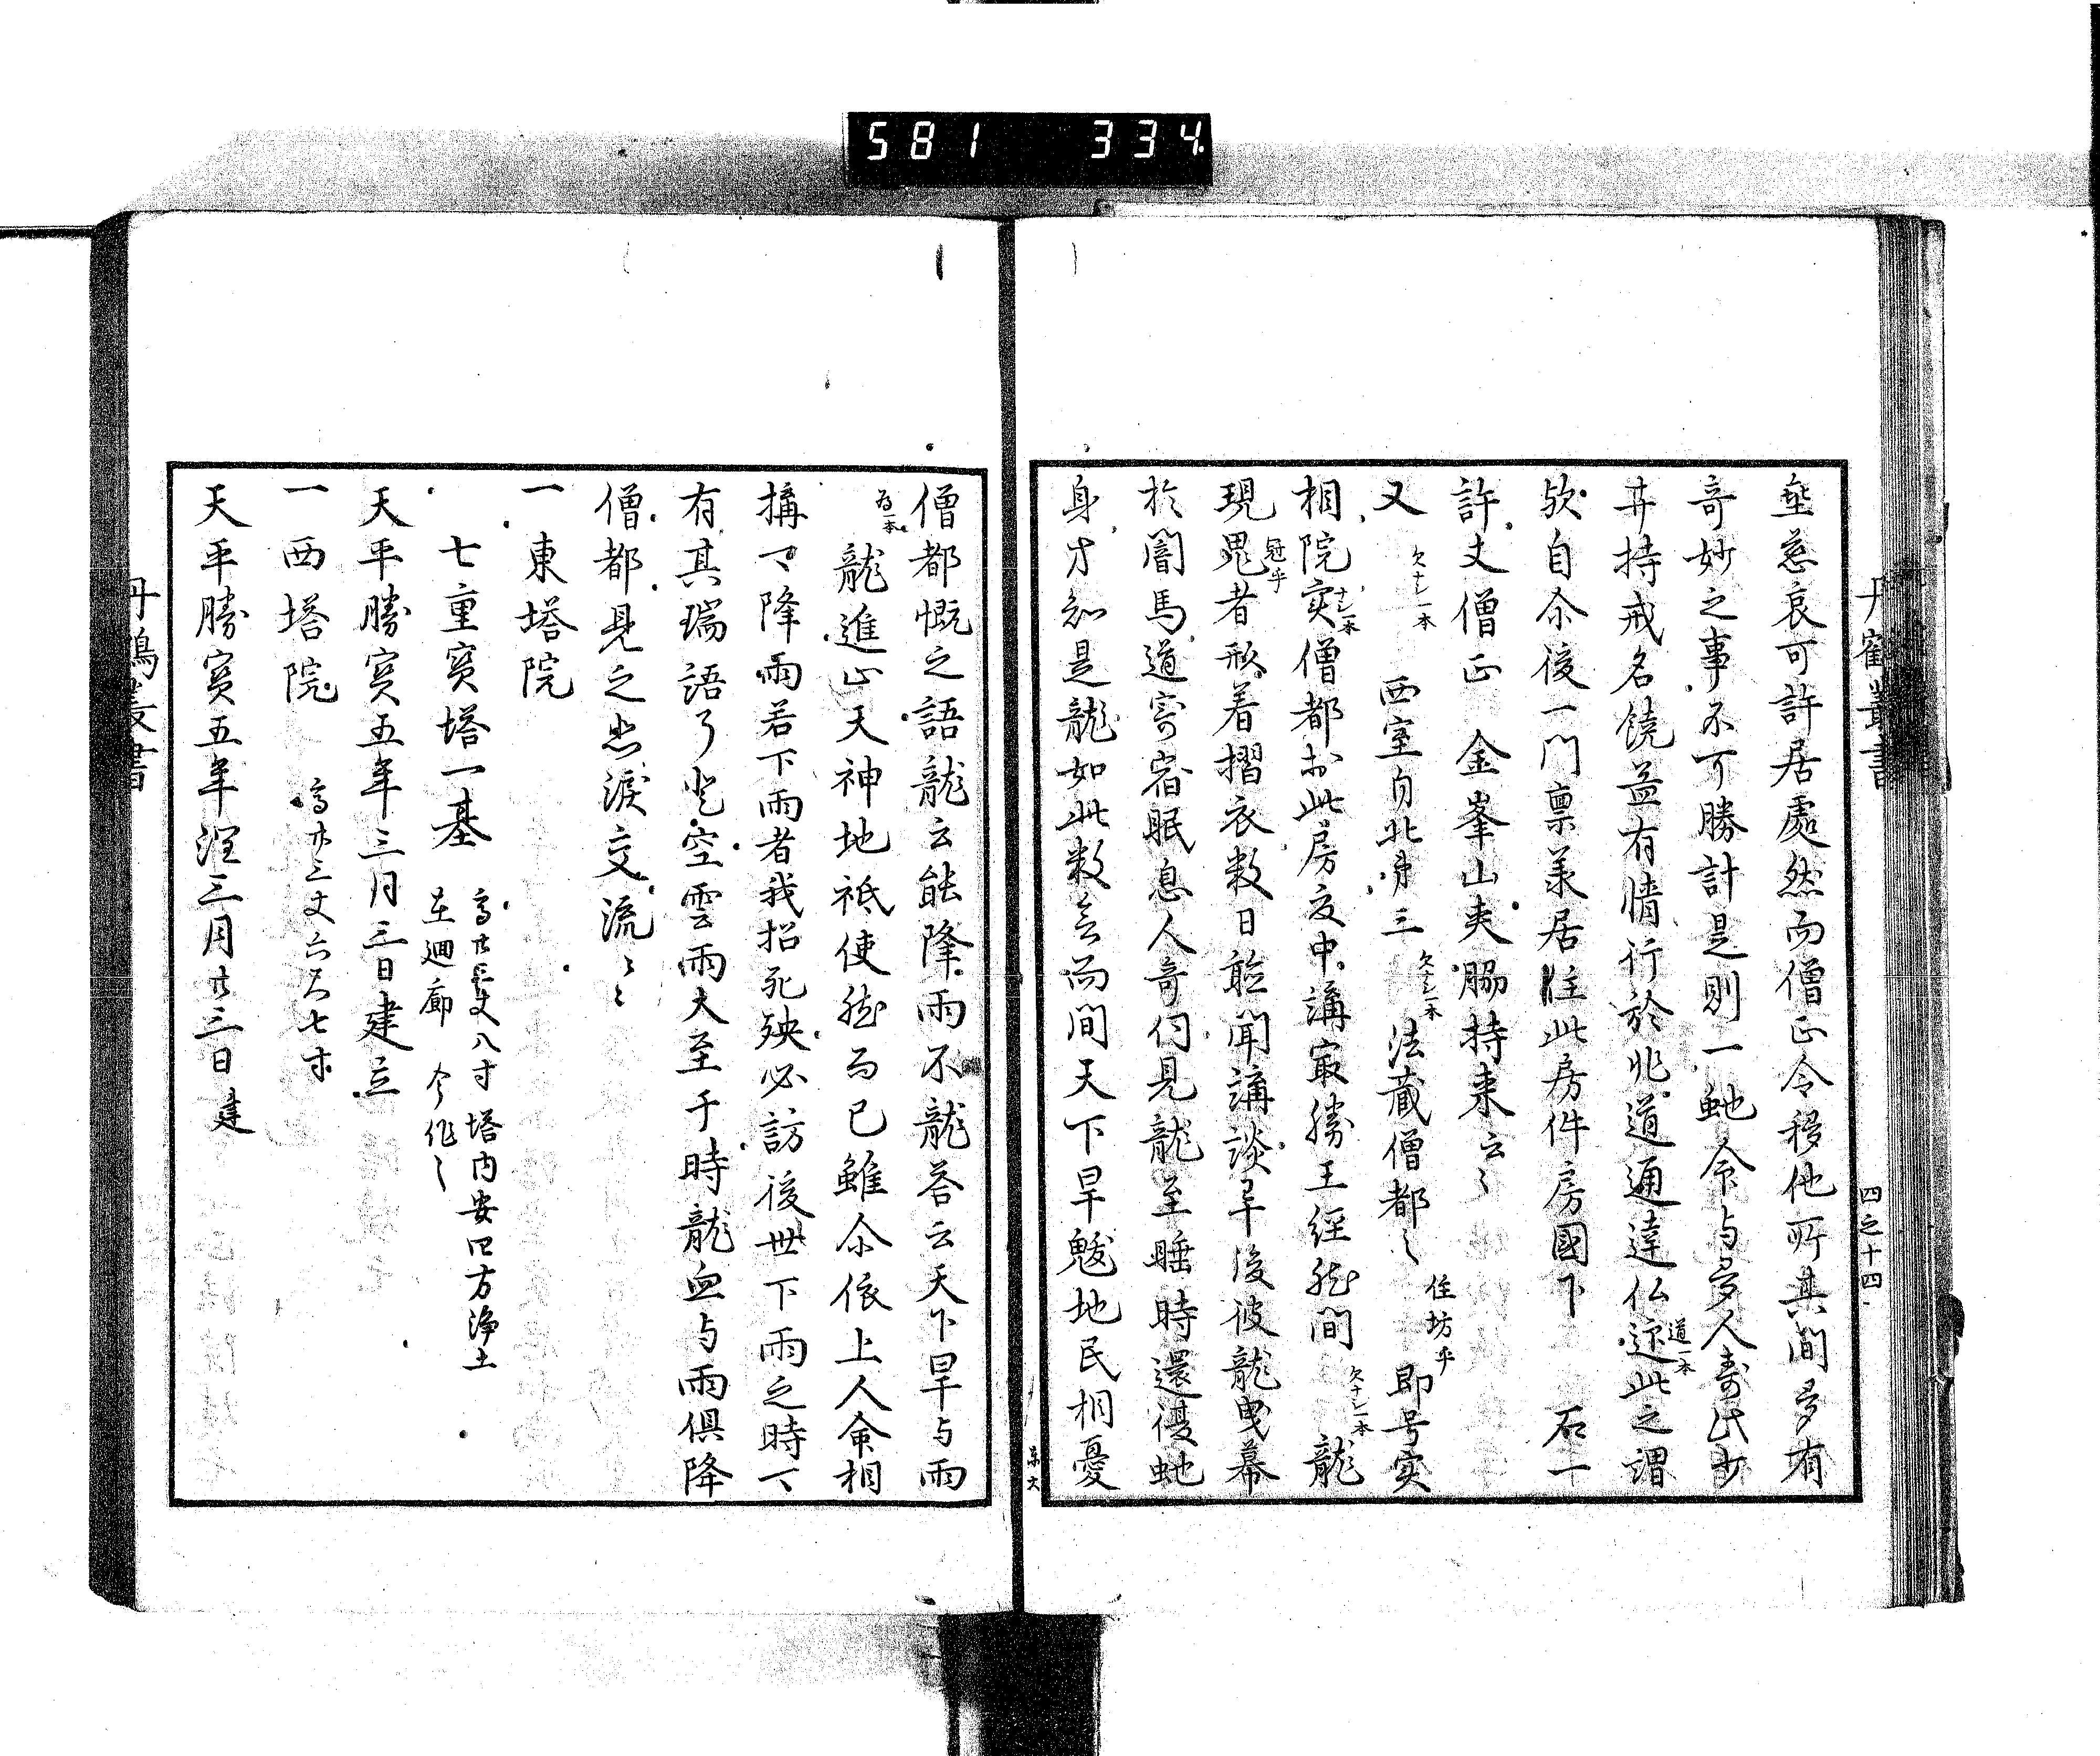 581 334
丹鶴叢書
四之十四
垂慈哀可許居處然而僧正令移他所其間多有
奇妙之事不可勝計是則一虵命与多人寿此少
廾持戒名饒益有情行於非道通達仏迹此之謂
道一本
欤自尒後一門禀羕居住此房件房國下 石一
許丈僧正 金峯山夾脇持来云々
又 西室自北第三 法蔵僧都々 即号实
欠十一本
欠十一本
住坊乎
相院实僧都於此房夜中講㝡勝王經然間 龍
十一本
欠十一本
現冕者形着摺衣数日聴聞講談畢後彼龍曳幕
冠乎
於闇馬道寄宿眠息人奇伺見龍至睡時還復虵
身才知是龍如此数 而間天下旱魃地民相憂
僧都慨之語龍云能降雨不龍荅云天下旱与雨
龍進止天神地祇使然而已雖尒依上人命相
為一本
搆可降雨若下雨者我招死殃必訪後世下雨之時可
有其瑞語了登空雲雨大至于時龍血与雨俱降
僧都見之悲淚交流云々
一東塔院
七重寳塔一基
塔内安四方浄土
在廻廊 今作々
天平勝寳五年三月三日建立
一西塔院 高廾三丈六尺七寸
天平勝寳五年潤三月廾三日建
丹鶴叢書